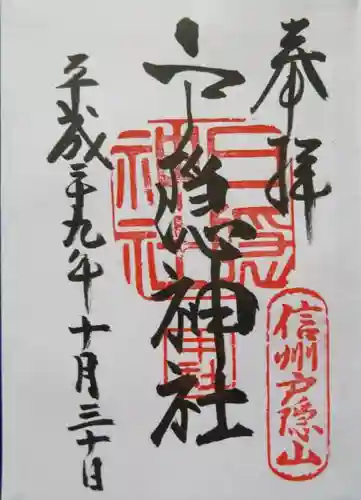 奉拝
戸隠神社
平成二十九年十月三十日
戸隠神社
中社
信州戸隠山